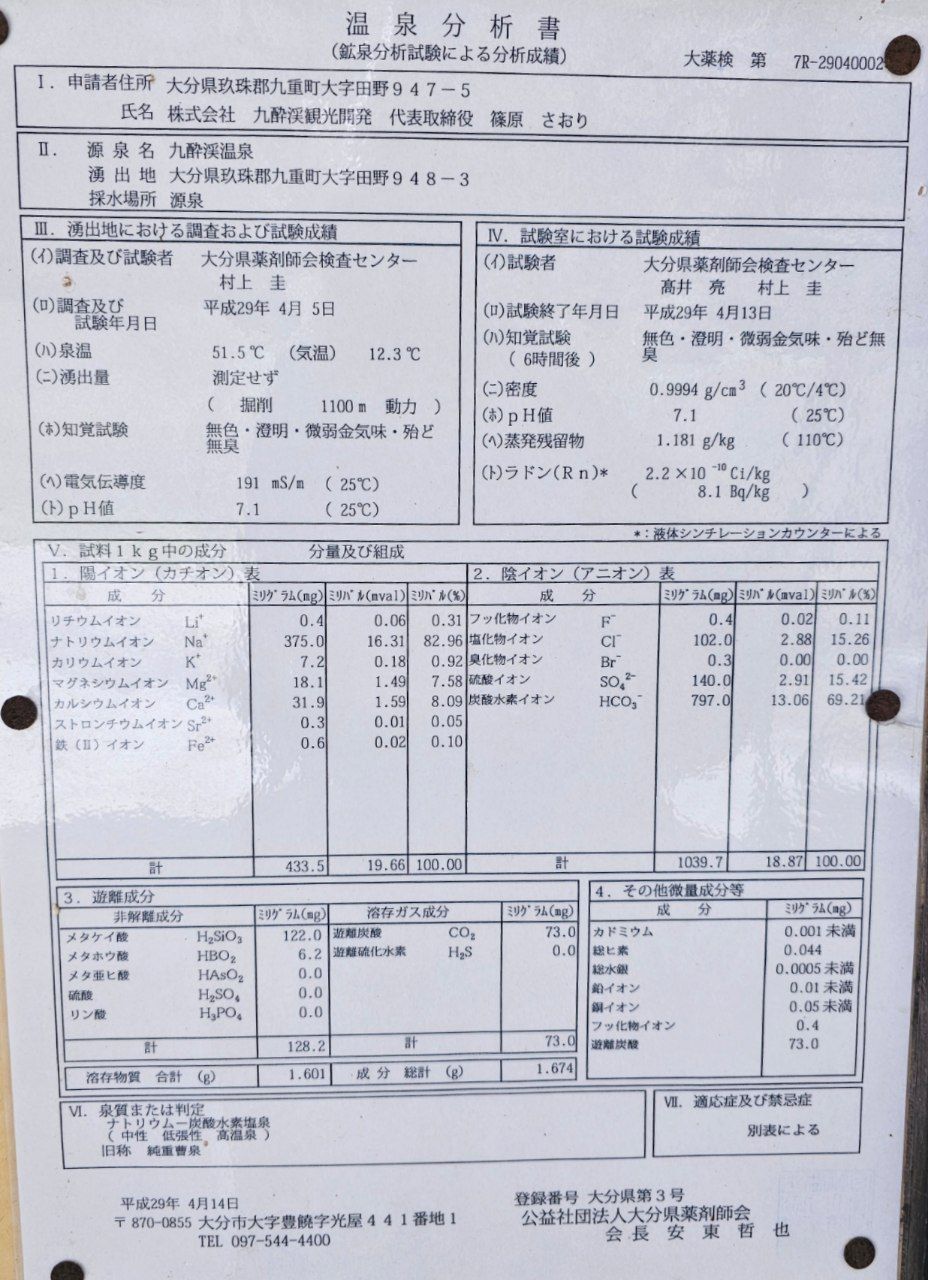 温泉分析書
(鉱泉分析試験による分析成績)
大薬検 第 7R-29040002
Ⅰ. 申請者住所 大分県玖珠郡九重町大字田野947-5
氏名 株式会社 九酔渓観光開発 代表取締役 篠原 さおり
Ⅱ. 源泉名 九酔渓温泉
湧出地 大分県玖珠郡九重町大字田野948-3
採水場所 源泉
Ⅲ. 湧出地における調査および試験成績
(イ)調査及び試験者 大分県薬剤師会検査センター
村上 圭
(ロ)調査及び 平成29年 4月 5日
試験年月日
(ハ)泉温 51.5℃ (気温) 12.3℃
(ニ)湧出量 測定せず
( 掘削 1100m 動力 )
(ホ)知覚試験 無色・澄明・微弱金気味・殆ど
無臭
(ヘ)電気伝導度 191 mS/m ( 25℃)
(ト)pH値 7.1 ( 25℃)
Ⅳ. 試験室における試験成績
(イ)試験者 大分県薬剤師会検査センター
髙井 亮 村上 圭
(ロ)試験終了年月日 平成29年 4月13日
(ハ)知覚試験 無色・澄明・微弱金気味・殆ど無
( 6時間後 ) 臭
(ニ)密度 0.9994 g/cm³ ( 20℃/4℃)
(ホ)pH値 7.1 ( 25℃)
(ヘ)蒸発残留物 1.181 g/kg ( 110℃)
(ト)ラドン(Rn)* 2.2×10⁻¹⁰Ci/kg
( 8.1 Bq/kg )
*:液体シンチレーションカウンターによる
Ⅴ. 試料1kg中の成分 分量及び組成
1. 陽イオン(カチオン)表
成分 ミリグラム(mg) ミリバル(mval) ミリバル(%)
リチウムイオン Li⁺ 0.4 0.06 0.31
ナトリウムイオン Na⁺ 375.0 16.31 82.96
カリウムイオン K⁺ 7.2 0.18 0.92
マグネシウムイオン Mg²⁺ 18.1 1.49 7.58
カルシウムイオン Ca²⁺ 31.9 1.59 8.09
ストロンチウムイオン Sr²⁺ 0.3 0.01 0.05
鉄(Ⅱ)イオン Fe²⁺ 0.6 0.02 0.10
計 433.5 19.66 100.00
2. 陰イオン(アニオン)表
成分 ミリグラム(mg) ミリバル(mval) ミリバル(%)
フッ化物イオン F⁻ 0.4 0.02 0.11
塩化物イオン Cl⁻ 102.0 2.88 15.26
臭化物イオン Br⁻ 0.3 0.00 0.00
硫酸イオン SO₄²⁻ 140.0 2.91 15.42
炭酸水素イオン HCO₃⁻ 797.0 13.06 69.21
計 1039.7 18.87 100.00
3. 遊離成分
非解離成分 ミリグラム(mg)
メタケイ酸 H₂SiO₃ 122.0
メタホウ酸 HBO₂ 6.2
メタ亜ヒ酸 HAsO₂ 0.0
硫酸 H₂SO₄ 0.0
リン酸 H₃PO₄ 0.0
計 128.2
溶存ガス成分 ミリグラム(mg)
遊離炭酸 CO₂ 73.0
遊離硫化水素 H₂S 0.0
計 73.0
溶存物質 合計 (g) 1.601 成分 総計 (g) 1.674
4. その他微量成分等
成分 ミリグラム(mg)
カドミウム 0.001 未満
総ヒ素 0.044
総水銀 0.0005 未満
鉛イオン 0.01 未満
銅イオン 0.05 未満
フッ化物イオン 0.4
遊離炭酸 73.0
Ⅵ. 泉質または判定
ナトリウム-炭酸水素塩泉
( 中性 低張性 高温泉 )
旧称 純重曹泉
Ⅶ. 適応症及び禁忌症
別表による
平成29年 4月14日
〒870-0855 大分市大字豊饒字光屋441番地1
TEL 097-544-4400
登録番号 大分県第3号
公益社団法人大分県薬剤師会
会長 安東哲也